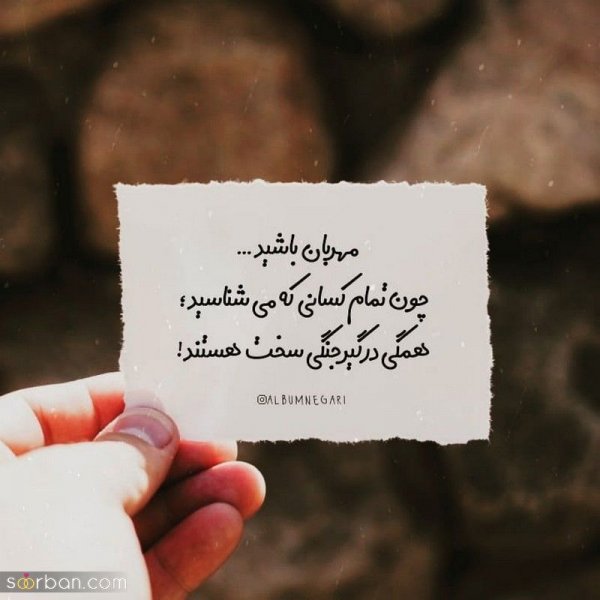 مهربان باشید ...
چون تمام کسانی که می شناسید ؛
همگی درگیر جنگی سخت هستند !
@ALBUMNEGARI
soorban.com